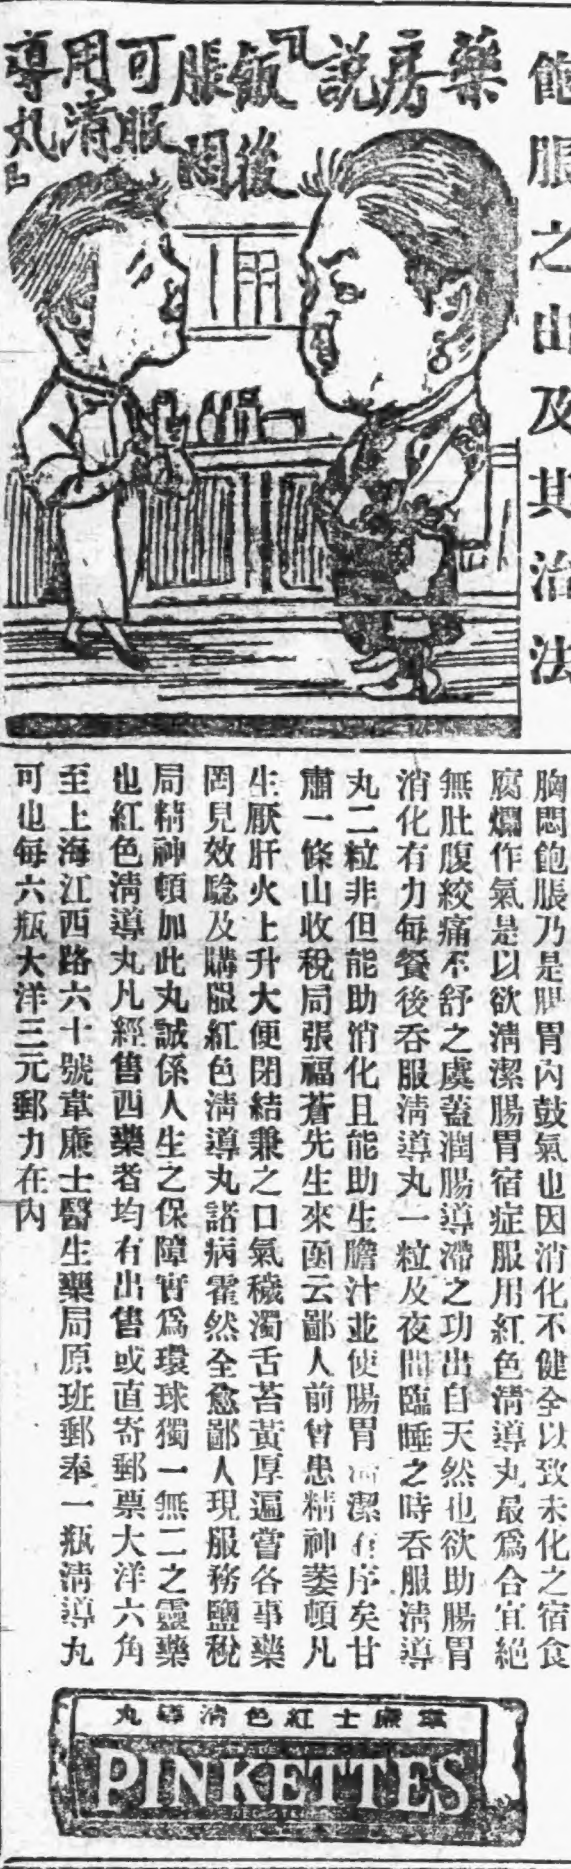 飽脹之由及其治法
藥房說
飯後
脹悶
可服
用清
導丸
胸悶飽脹乃是腸胃內鼓氣也因消化不健全以致未化之宿食
腐爛作氣是以欲清潔腸胃宿症服用紅色清導丸最爲合宜絕
無肚腹絞痛不舒之虞蓋潤腸導滯之功出自天然也欲助腸胃
消化有力每餐後吞服清導丸一粒及夜間臨睡之時吞服清導
丸二粒非但能助消化且能助生膽汁並使腸胃清潔有序矣甘
肅一條山收稅局張福蒼先生來函云鄙人前曾患精神萎頓凡
生厭肝火上升大便閉結兼之口氣穢濁舌苔黃厚遍嘗各事藥
罔見效騐及購服紅色清導丸諸病霍然全愈鄙人現服務鹽稅
局精神頓加此丸誠係人生之保障實爲環球獨一無二之靈藥
也紅色清導丸凡經售西藥者均有出售或直寄郵票大洋六角
至上海江西路六十號韋廉士醫生藥局原班郵奉一瓶清導丸
可也每六瓶大洋三元郵力在內
韋廉士紅色清導丸
PINKETTES